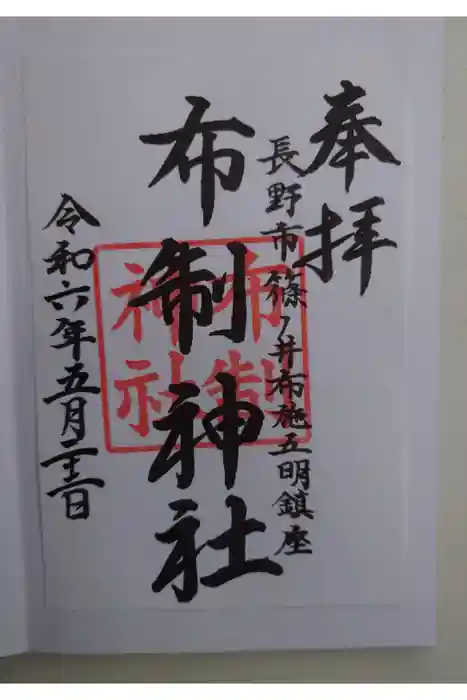 奉拝
長野市篠ノ井布施五明鎮座
布制神社
布制神社
令和六年五月二十三日